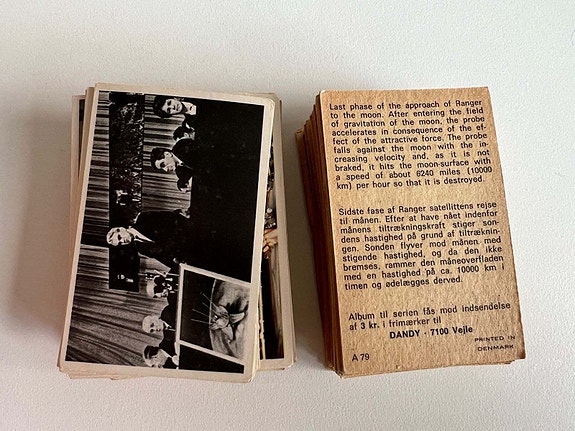 Last phase of the approach of Ranger
to the moon. After entering the field
of gravitation of the moon, the probe
accelerates in consequence of the ef-
fect of the attractive force. The probe
falls against the moon with the in-
creasing velocity and, as it is not
braked, it hits the moon-surface with
a speed of about 6240 miles (10000
km) per hour so that it is destroyed.
Sidste fase af Ranger satellittens rejse
til månen. Efter at have nået indenfor
månens tiltrækningskraft stiger son-
dens hastighed på grund af tiltræknin-
gen. Sonden flyver mod månen med
stigende hastighed, og da den ikke
bremses, rammer den måneoverfladen
med en hastighed på ca. 10000 km i
timen og ødelægges derved.
Album til serien fås mod indsendelse
af 3 kr. i frimærker til
DANDY - 7100 Vejle
A 79
PRINTED IN
DENMARK